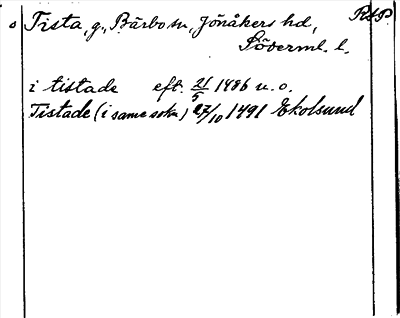 Tista, g., Bärbo sn, Jönåkers hd, RäP
Söderml. l.
i tistade eft. 21/5 1486 u. o.
Tistade (i samme sokn) 27/10 1491 Ekolsund